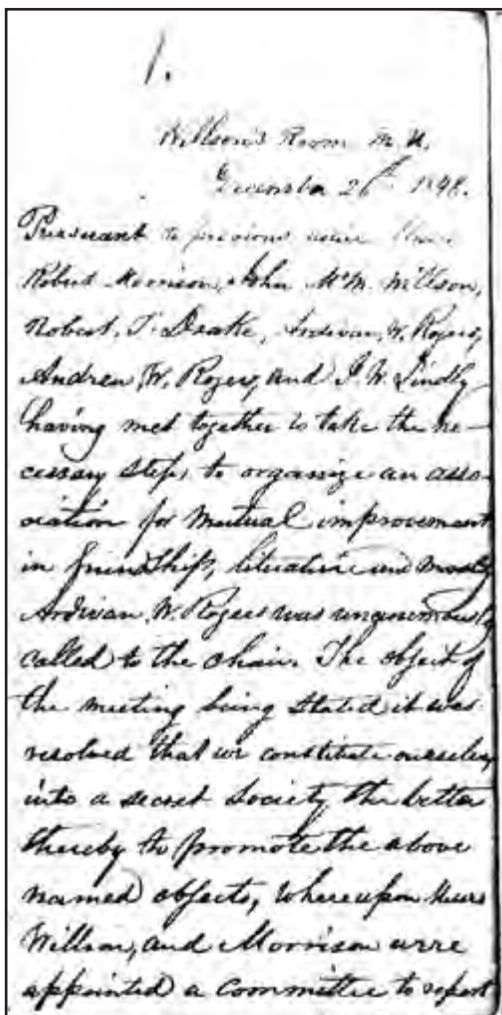 1.
Wilson's Room M. U.
December 26th 1848.
Pursuant to previous notice
Robert Morrison, John McM. Willson,
Robert. T. Drake, Ardivan, W. Rogers,
Andrew, W. Rogers, and J. W. Lindly
having met together to take the ne-
cessary steps to organize an asso-
ciation for mutual improvement
in friendship, literature and
Ardivan, W. Rogers was unanimously
called to the chair. The object of
the meeting being stated it was
resolved that we constitute ourselves
into a secret Society the better
thereby to promote the above
named objects, whereupon
Willson, and Morrison were
appointed a committee to report